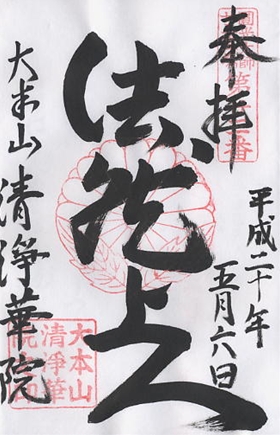 奉拝
平成二十年
五月六日
法然上人
大本山
清浄華院
大本山
清浄華
院印